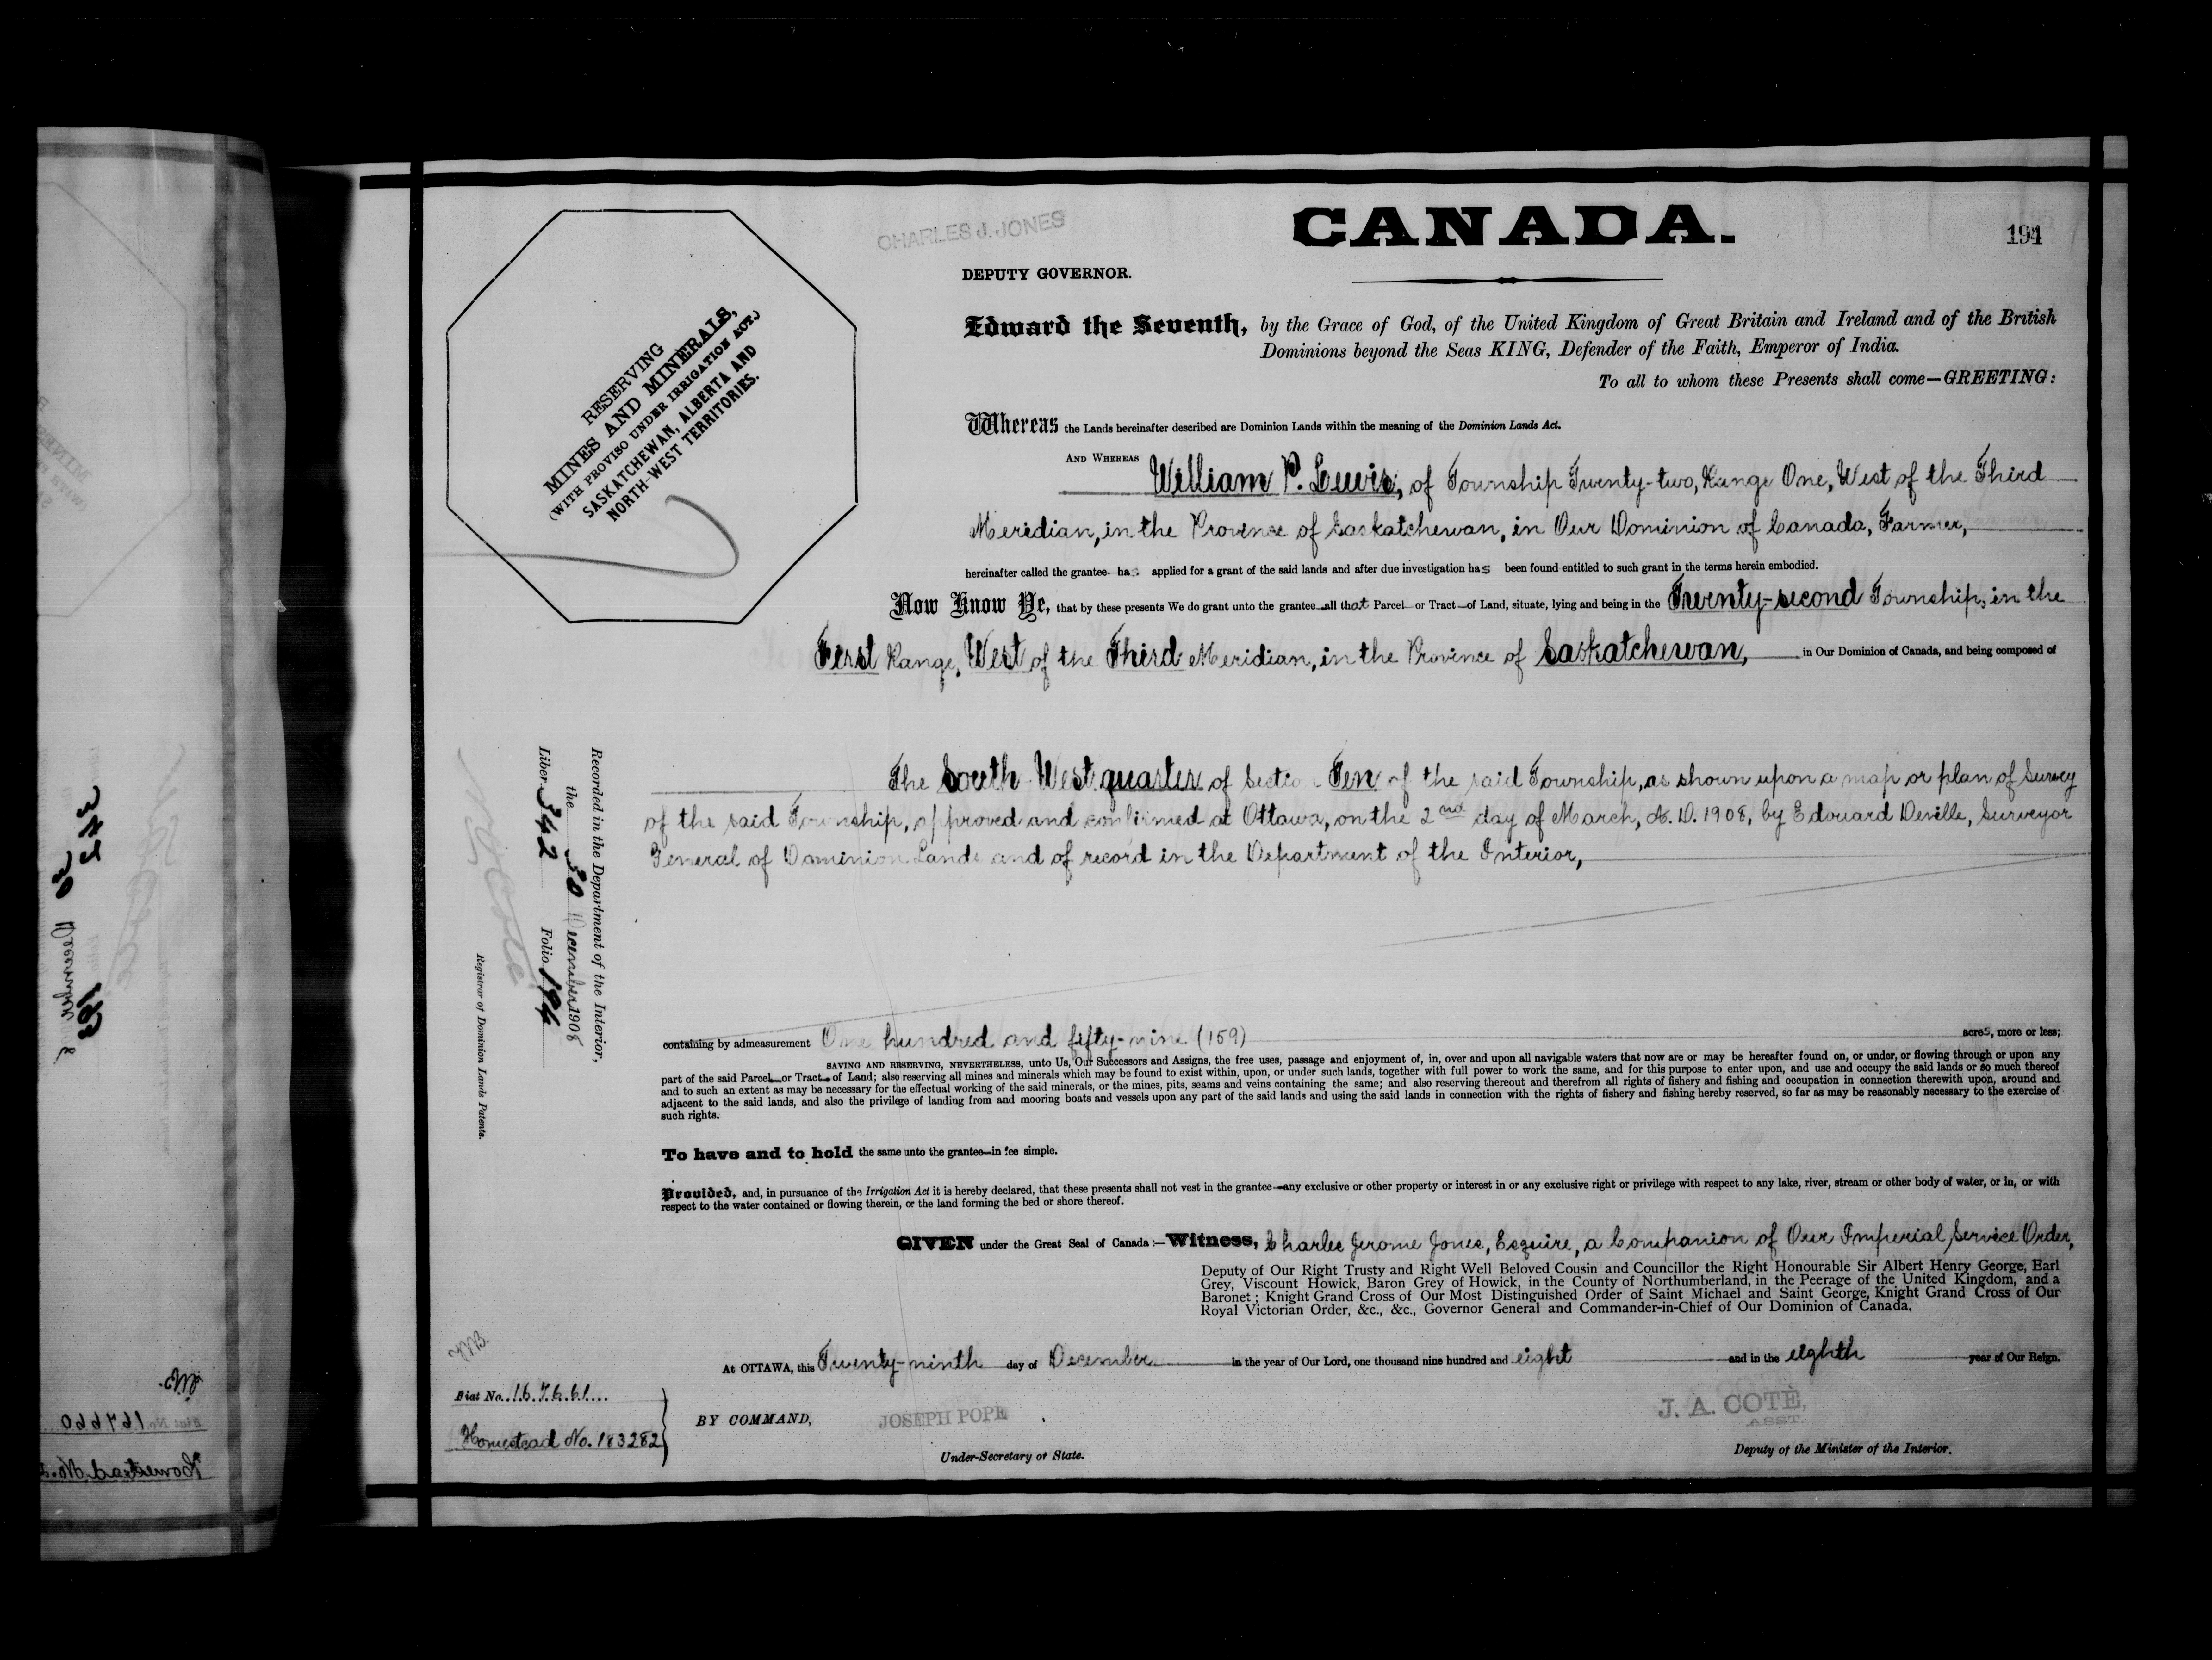 CHARLES J. JONES
CANADA.
194
DEPUTY GOVERNOR.
RESERVING
MINES AND MINERALS,
(WITH PROVISO UNDER IRRIGATION ACT.)
SASKATCHEWAN, ALBERTA AND
NORTH-WEST TERRITORIES.
Edward the Seventh, by the Grace of God, of the United Kingdom of Great Britain and Ireland and of the British
Dominions beyond the Seas KING, Defender of the Faith, Emperor of India.
To all to whom these Presents shall come—GREETING:
Whereas the Lands hereinafter described are Dominion Lands within the meaning of the Dominion Lands Act.
AND WHEREAS William P. Lewis, of Township Twenty-two, Range One, West of the Third
Meridian, in the Province of Saskatchewan, in Our Dominion of Canada, Farmer,
hereinafter called the grantee has applied for a grant of the said lands and after due investigation has been found entitled to such grant in the terms herein embodied.
Now Know Ye, that by these presents We do grant unto the grantee all that Parcel or Tract of Land, situate, lying and being in the Twenty-second Township, in the
First Range, West of the Third Meridian, in the Province of Saskatchewan, in Our Dominion of Canada, and being composed of
The South West quarter of Section Ten of the said Township, as shown upon a map or plan of Survey
of the said Township, approved and confirmed at Ottawa, on the 2nd day of March, A.D. 1908, by Edouard Deville, Surveyor
General of Dominion Lands and of record in the Department of the Interior,
Recorded in the Department of the Interior,
the 30 December 1908
Liber 342 Folio 194
N. O. Coté
Registrar of Dominion Lands Patents.
containing by admeasurement One hundred and fifty-nine (159) acres, more or less;
SAVING AND RESERVING, NEVERTHELESS, unto Us, Our Successors and Assigns, the free uses, passage and enjoyment of, in, over and upon all navigable waters that now are or may be hereafter found on, or under, or flowing through or upon any
part of the said Parcel or Tract of Land; also reserving all mines and minerals which may be found to exist within, upon, or under such lands, together with full power to work the same, and for this purpose to enter upon, and use and occupy the said lands or so much thereof
and to such an extent as may be necessary for the effectual working of the said minerals, or the mines, pits, seams and veins containing the same; and also reserving thereout and therefrom all rights of fishery and fishing and occupation in connection therewith upon, around and
adjacent to the said lands, and also the privilege of landing from and mooring boats and vessels upon any part of the said lands and using the said lands in connection with the rights of fishery and fishing hereby reserved, so far as may be reasonably necessary to the exercise of
such rights.
To have and to hold the same unto the grantee in fee simple.
Provided, and, in pursuance of the Irrigation Act it is hereby declared, that these presents shall not vest in the grantee any exclusive or other property or interest in or any exclusive right or privilege with respect to any lake, river, stream or other body of water, or in, or with
respect to the water contained or flowing therein, or the land forming the bed or shore thereof.
GIVEN under the Great Seal of Canada:—Witness, Charles Jerome Jones, Esquire, a Companion of Our Imperial Service Order,
Deputy of Our Right Trusty and Right Well Beloved Cousin and Councillor the Right Honourable Sir Albert Henry George, Earl
Grey, Viscount Howick, Baron Grey of Howick, in the County of Northumberland, in the Peerage of the United Kingdom, and a
Baronet; Knight Grand Cross of Our Most Distinguished Order of Saint Michael and Saint George, Knight Grand Cross of Our
Royal Victorian Order, &c., &c., Governor General and Commander-in-Chief of Our Dominion of Canada.
At OTTAWA, this Twenty-ninth day of December in the year of Our Lord, one thousand nine hundred and eight and in the eighth year of Our Reign.
Fiat No. 167661
Homestead No. 183282
BY COMMAND,
JOSEPH POPE
Under-Secretary of State.
J. A. COTÈ,
ASST.
Deputy of the Minister of the Interior.